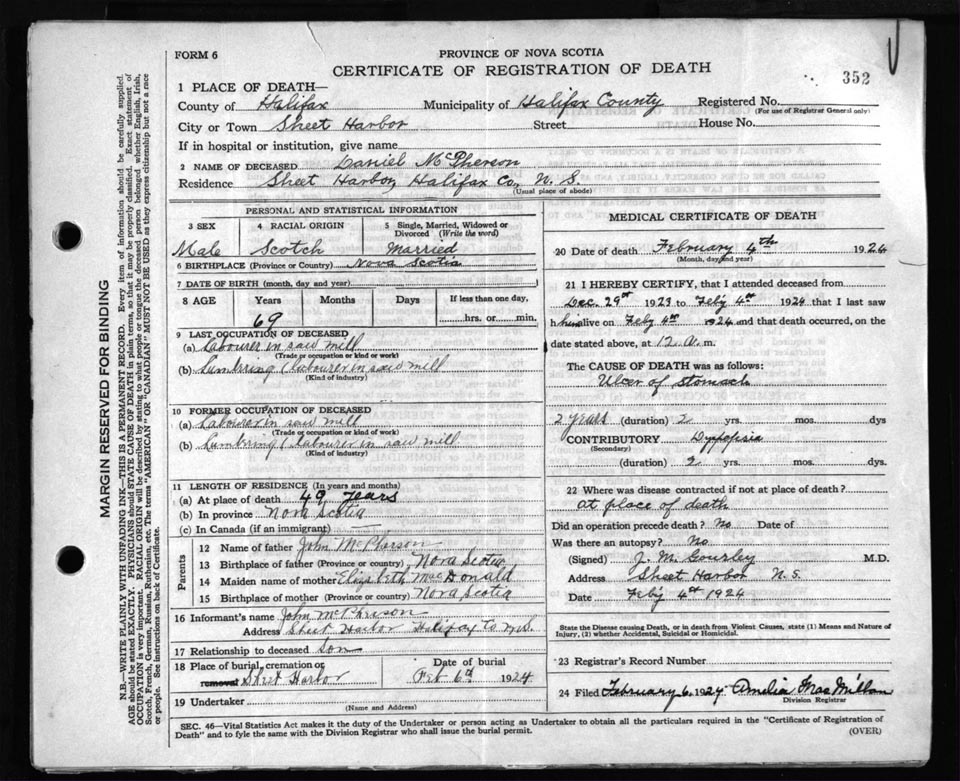 FORM 6
PROVINCE OF NOVA SCOTIA
CERTIFICATE OF REGISTRATION OF DEATH
352
1 PLACE OF DEATH—
County of Halifax Municipality of Halifax County Registered No.
(For use of Registrar General only)
City or Town Sheet Harbor Street House No.
If in hospital or institution, give name
2 NAME OF DECEASED Daniel McPherson
Residence Sheet Harbor Halifax Co, N. S.
(Usual place of abode)
PERSONAL AND STATISTICAL INFORMATION
3 SEX 4 RACIAL ORIGIN 5 Single, Married, Widowed or Divorced (Write the word)
Male Scotch Married
6 BIRTHPLACE (Province or Country) Nova Scotia
7 DATE OF BIRTH (month, day and year)
8 AGE Years Months Days If less than one day,
69 hrs. or min.
9 LAST OCCUPATION OF DECEASED
(a) Labourer in saw mill
(Trade or occupation or kind of work)
(b) Lumbring (labourer in saw mill
(Kind of industry)
10 FORMER OCCUPATION OF DECEASED
(a) Labourer in saw mill
(Trade or occupation or kind of work)
(b) Lumbring (labourer in saw mill
(Kind of industry)
11 LENGTH OF RESIDENCE (In years and months)
(a) At place of death 49 years
(b) In province Nova Scotia
(c) In Canada (if an immigrant)
Parents
12 Name of father John McPherson
13 Birthplace of father (Province or country) Nova Scotia
14 Maiden name of mother Elizabeth MacDonald
15 Birthplace of mother (Province or country) Nova Scotia
16 Informant's name John McPherson
Address Sheet Harbor Halifax Co N.S.
17 Relationship to deceased son
18 Place of burial, cremation or removal Sheet Harbor
Date of burial
Feb 6th 1924
19 Undertaker
(Name and Address)
MEDICAL CERTIFICATE OF DEATH
20 Date of death February 4th 1924
(Month, day and year)
21 I HEREBY CERTIFY, that I attended deceased from
Dec. 29th 1923 to Feb'y 4th 1924 that I last saw
h him alive on Feb'y 4th 1924 and that death occurred, on the
date stated above, at 12 a. m.
The CAUSE OF DEATH was as follows:
Ulcer of stomach
2 years (duration) 2 yrs. mos. dys
CONTRIBUTORY Dyspepsia
(Secondary)
(duration) 2 yrs. mos. dys.
22 Where was disease contracted if not at place of death?
At place of death
Did an operation precede death? No Date of
Was there an autopsy? No
(Signed) J. M. Gourley M.D.
Address Sheet Harbor N.S.
Date Feb'y 4th 1924
State the Disease causing Death, or in death from Violent Causes, state (1) Means and Nature of
Injury, (2) whether Accidental, Suicidal or Homicidal.
23 Registrar's Record Number
24 Filed February 6, 1924. Amelia MacMillan
Division Registrar
SEC. 46—Vital Statistics Act makes it the duty of the Undertaker or person acting as Undertaker to obtain all the particulars required in the "Certificate of Registration of
Death" and to fyle the same with the Division Registrar who shall issue the burial permit.
(OVER)
MARGIN RESERVED FOR BINDING
N.B.—WRITE PLAINLY WITH UNFADING INK—THIS IS A PERMANENT RECORD. Every item of information should be carefully supplied.
AGE should be stated EXACTLY. PHYSICIANS should STATE CAUSE OF DEATH in plain terms, so that it may be properly classified. Exact statement of
OCCUPATION is very important. RACIAL ORIGIN will be described by stating to what people or tongue the deceased person belonged whether English, Irish,
Scotch, French, German, Russian, Ruthenian, etc. The terms "AMERICAN" OR "CANADIAN" MUST NOT BE USED as they express citizenship but not a race
or people. See instructions on back of Certificate.